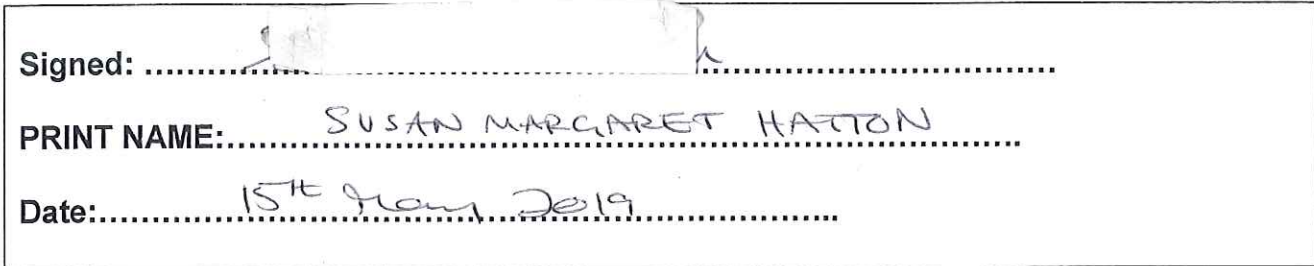 Signed: ..........
PRINT NAME: SUSAN MARGARET HATTON
Date: 15TH May 2019